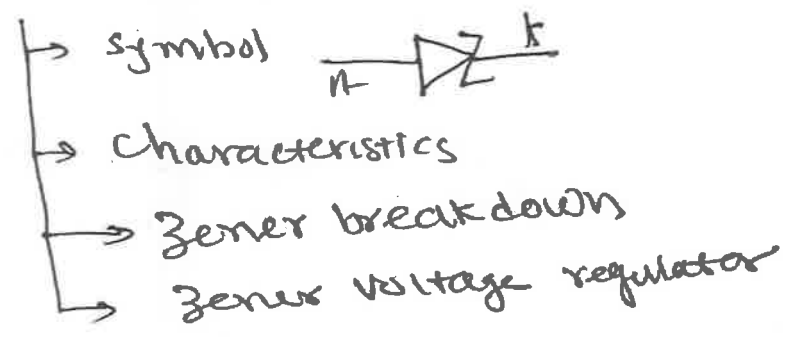 symbol A K
characteristics
Zener breakdown
Zener voltage regulator